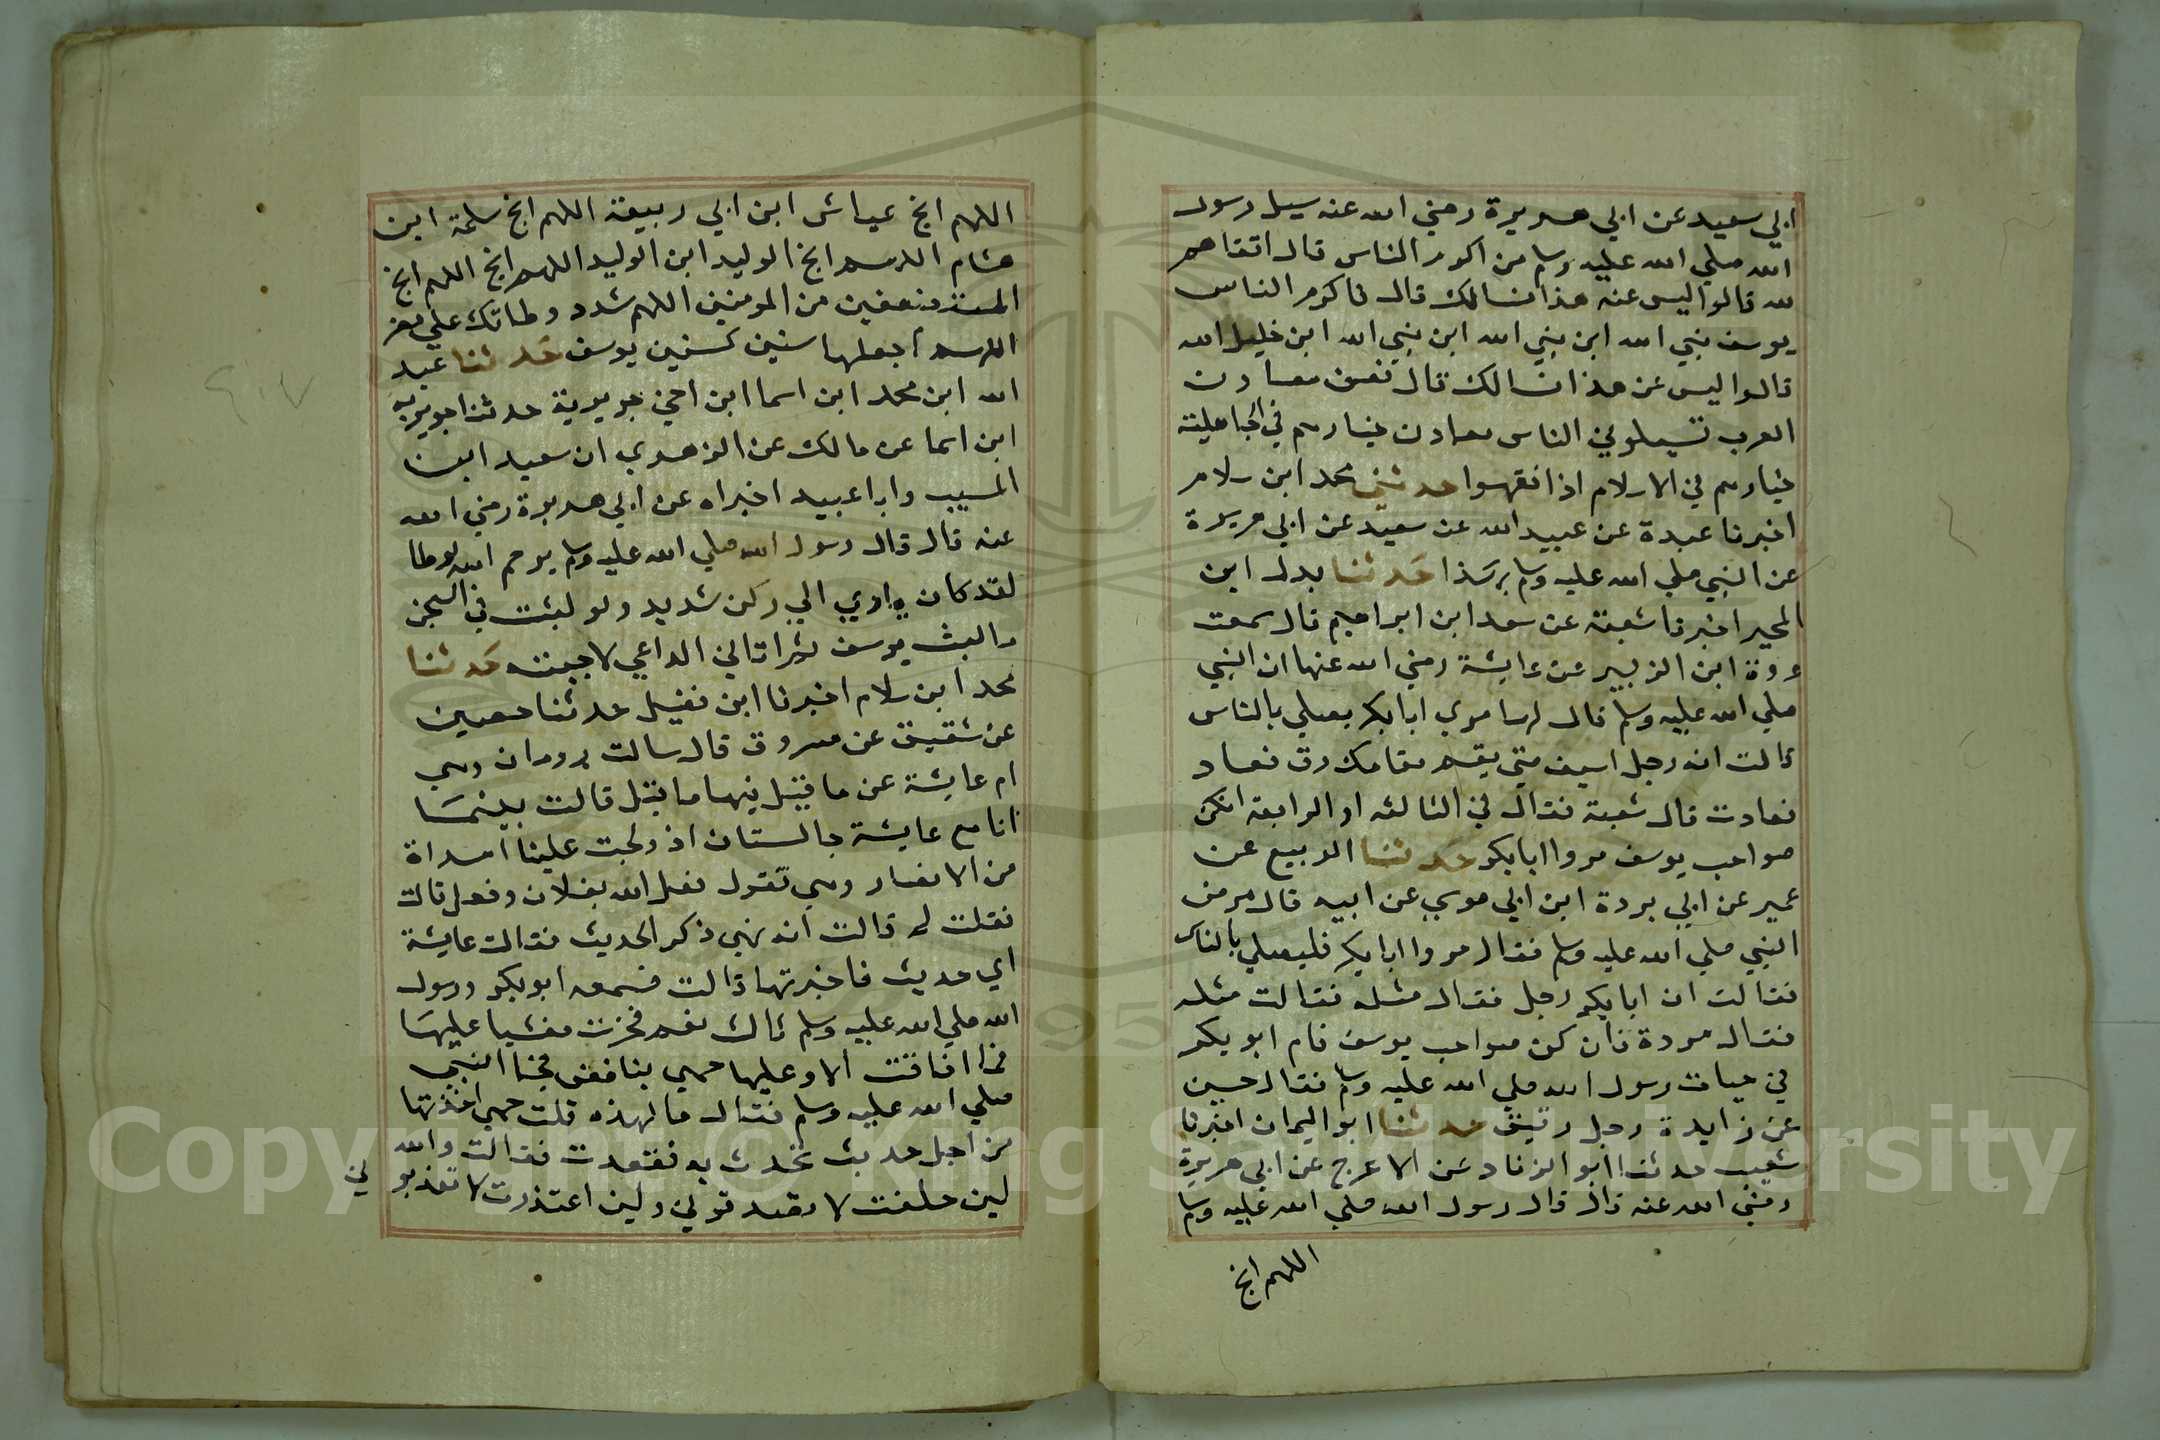 ابي سعيد عن ابي هريرة رضي الله عنه سيل رسول
الله صلي الله عليه وسلم من اكرم الناس قال اتقاهم
لله قالوا ليس عنه هذا نسالك قال فاكرم الناس
يوسف نبي الله ابن نبي الله ابن نبي الله ابن خليل الله
قالوا ليس عن هذا نسالك قال فعن معادن
العرب تسيلوني الناس معادن خيارهم في الجاهلية
خيارهم في الاسلام اذا فقهوا حدثني محمد ابن سلام
اخبرنا عبدة عن عبيد الله عن سعيد عن ابي هريرة
عن النبي صلي الله عليه وسلم بهذا حدثنا بدل ابن
المحبر اخبرنا شعبة عن سعد ابن ابراهيم قال سمعت
عروة ابن الزبير عن عايشة رضي الله عنها ان النبي
صلي الله عليه وسلم قال لها مري ابا بكر يصلي بالناس
قالت انه رجل اسيف متي يقم مقامك رق فعاد
فعادت قال شعبة فقال في الثالثه او الرابعة انكن
صواحب يوسف مروا ابا بكر حدثنا الربيع عن
عمير عن ابي بردة ابن ابي موسي عن ابيه قال مرض
النبي صلي الله عليه وسلم فقال مروا ابا بكر فليصلي بالناس
فقالت ان ابا بكر رجل فقال مثله فقالت مثله
فقال مروة فان كن صواحب يوسف فام ابو بكر
في حيات رسول الله صلي الله عليه وسلم فقال حسين
عن زايدة رجل رقيق حدثنا ابو اليمان اخبرنا
شعيب حدثنا ابو الزناد عن الاعرج عن ابي هريرة
رضي الله عنه قال قال رسول الله صلي الله عليه وسلم
اللهم انج
اللهم انج عياش ابن ابي ربيعة اللهم انج سلمة ابن
هشام اللهم انج الوليد ابن الوليد اللهم انج اللهم انج
المستضعفين من المومنين اللهم شدد وطاتك علي مضر
اللهم اجعلها سنين كسنين يوسف حدثنا عبد
الله ابن محمد ابن اسما ابن اخي جويرية حدثنا جويرية
ابن اسما عن مالك عن الزهري ان سعيد ابن
المسيب وابا عبيد اخبراه عن ابي هريرة رضي الله
عنه قال قال رسول الله صلي الله عليه وسلم يرحم الله لوطا
لقد كان ياوي الي ركن شديد ولو لبثت في السجن
ما لبث يوسف ثم اتاني الداعي لاجبته حدثنا
محمد ابن سلام اخبرنا ابن فضيل حدثنا حصين
عن شقيق عن مسروق قال سالت ام رومان وهي
ام عايشة عن ما قيل فيها ما قيل قالت بينما
انا مع عايشة جالستان اذ ولجت علينا امراة
من الانصار وهي تقول فعل الله بفلان وفعل قالت
فقلت لم قالت انه نمي ذكر الحديث فقالت عايشة
اي حديث فاخبرتها قالت فسمعه ابو بكر ورسول
الله صلي الله عليه وسلم قالت نعم فخرت مغشيا عليها
فما افاقت الا وعليها حمي بنافض فجا النبي
صلي الله عليه وسلم فقال ما لهذه قلت حمي اخذتها
من اجل حديث تحدث به فقعدت فقالت والله
لين حلفت لا تصدقوني ولين اعتذرت لا تعذبو
ني
Copyright © King Saud University